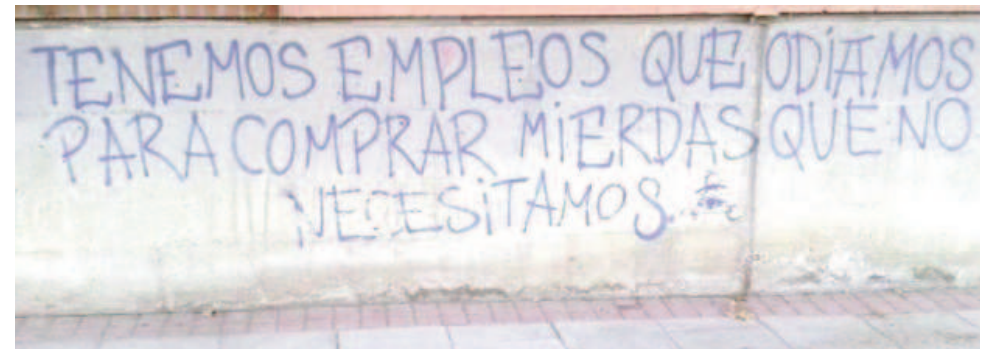 TENEMOS EMPLEOS QUE ODiAMOS
PARA COMPRAR MiERDAS QUE NO
NECESiTAMOS...